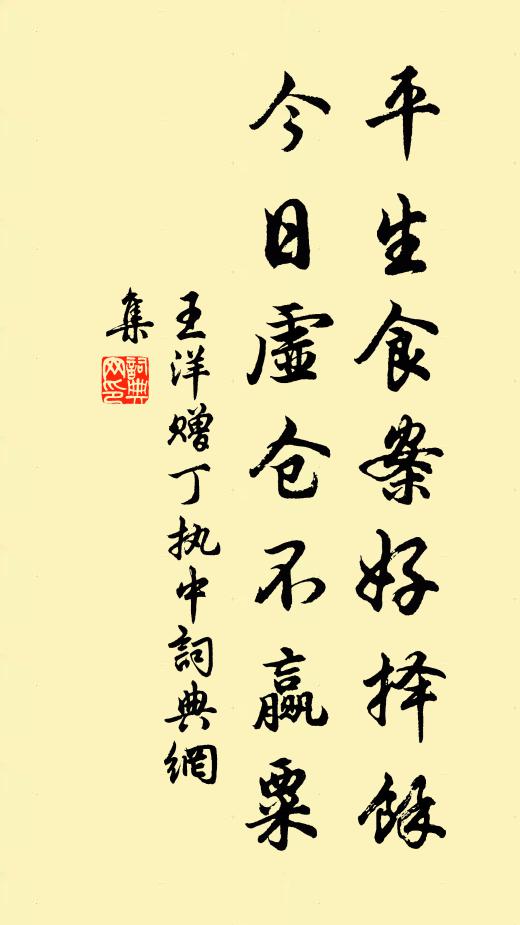 平生食案好择馀
今日虚仓不赢粟
王洋赠丁执中詞典網
集
詞典网印